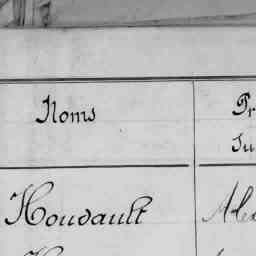 Noms
Pr
Su
Houdault
Alex